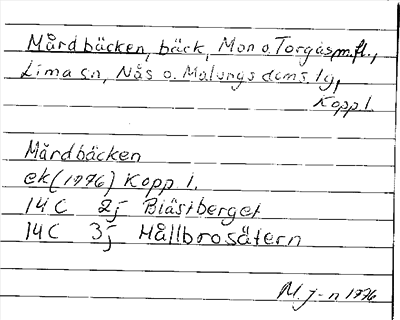 Mårdbäcken, bäck, Mon o. Torgås m.fl.,
Lima sn, Nås o. Malungs doms. lg,
Kopp. l.
Mårdbäcken
ek (1976) Kopp. l.
14 C 2j Blästberget
14 C 3j Hållbrosätern
M. j-n 1976